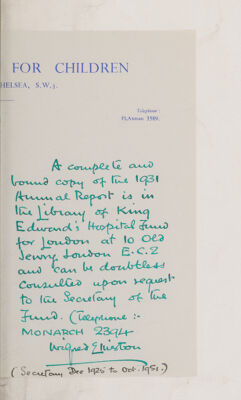 FOR CHILDREN
HELSEA, S.W.3.
Telephone:
FLAxman 1589.
A complete and
bound copy of the 1931
Annual Report is in
the Library of King
Edward's Hospital Fund
for London at 10 Old
Jewry London E.C.2
and can be doubtless
consulted upon request
to the Secretary of the
Fund. (Telephone :-
MONARCH 2394
Wilfred
(Secretary Dec 1925 to Oct. 1951.)